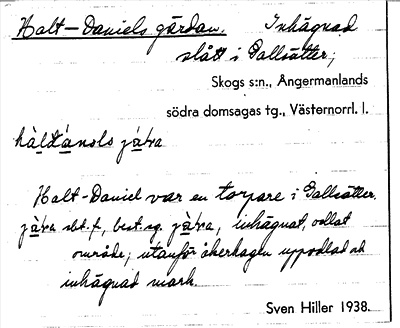 Halt-Daniels gärdan. Inhägnad
slått i Gallsätter;
Skogs s:n., Ångermanlands
södra domsagas tg., Västernorrl. l.
Halt-Daniel var en torpare i Gallsätter.
sbt. f., best. sg. inhägnat, odlat
område; utanför åkerhagen uppodlad och
inhägnad mark.
Sven Hiller 1938.